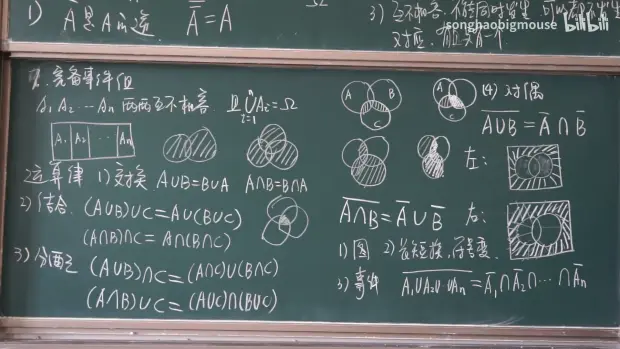 1) A是A的逆 $\overline{\overline{A}}=A$
3) 互不相容, 不能同时发生
对应
songhaobigmouse bilibili
完备事件组
A₁ A₂ ⋯ Aₙ 两两互不相容 且 $\bigcup_{i=1}^{n}$ Aᵢ = Ω
A₁ A₂ ⋯ Aₙ
运算律 1) 交换 A∪B=B∪A A∩B=B∩A
2) 结合 (A∪B)∪C=A∪(B∪C)
(A∩B)∩C=A∩(B∩C)
3) 分配 (A∪B)∩C=(A∩C)∪(B∩C)
(A∩B)∪C=(A∪C)∩(B∪C)
A B C
A B C
(4) 对偶
$\overline{A∪B}=\overline{A}∩\overline{B}$
左:
$\overline{A∩B}=\overline{A}∪\overline{B}$ 右:
1) 图 2) 长短换, 符号变
3) $\overline{A_1∪A_2∪⋯∪A_n}=\overline{A_1}∩\overline{A_2}∩⋯∩\overline{A_n}$